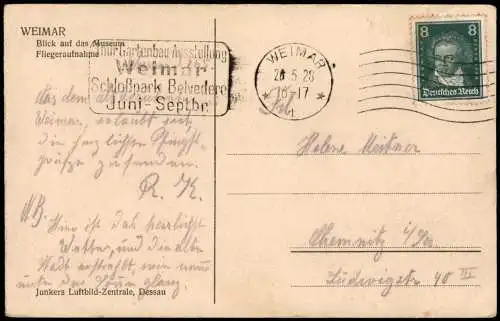 WEIMAR
Blick auf das Museum
Fliegeraufnahme
Thür. Gartenbau-Ausstellung
Weimar
Schloßpark Belvedere
Juni-Septbr.
WEIMAR
26.5.28
16-17
8 8
Deutsches Reich
Aus dem
Weimar, erlaubt sich
die herzlichsten Pfingst-
grüße zu senden.
R. K.
N.B.
Hier ist das herrlichste
Wetter, und die alte
Stadt erstrahlt, wie
unter des Sonnenglanz.
Frl.
Helene Meitner
Chemnitz i/Sa.
Ludwigstr. 40 III
Junkers Luftbild-Zentrale, Dessau